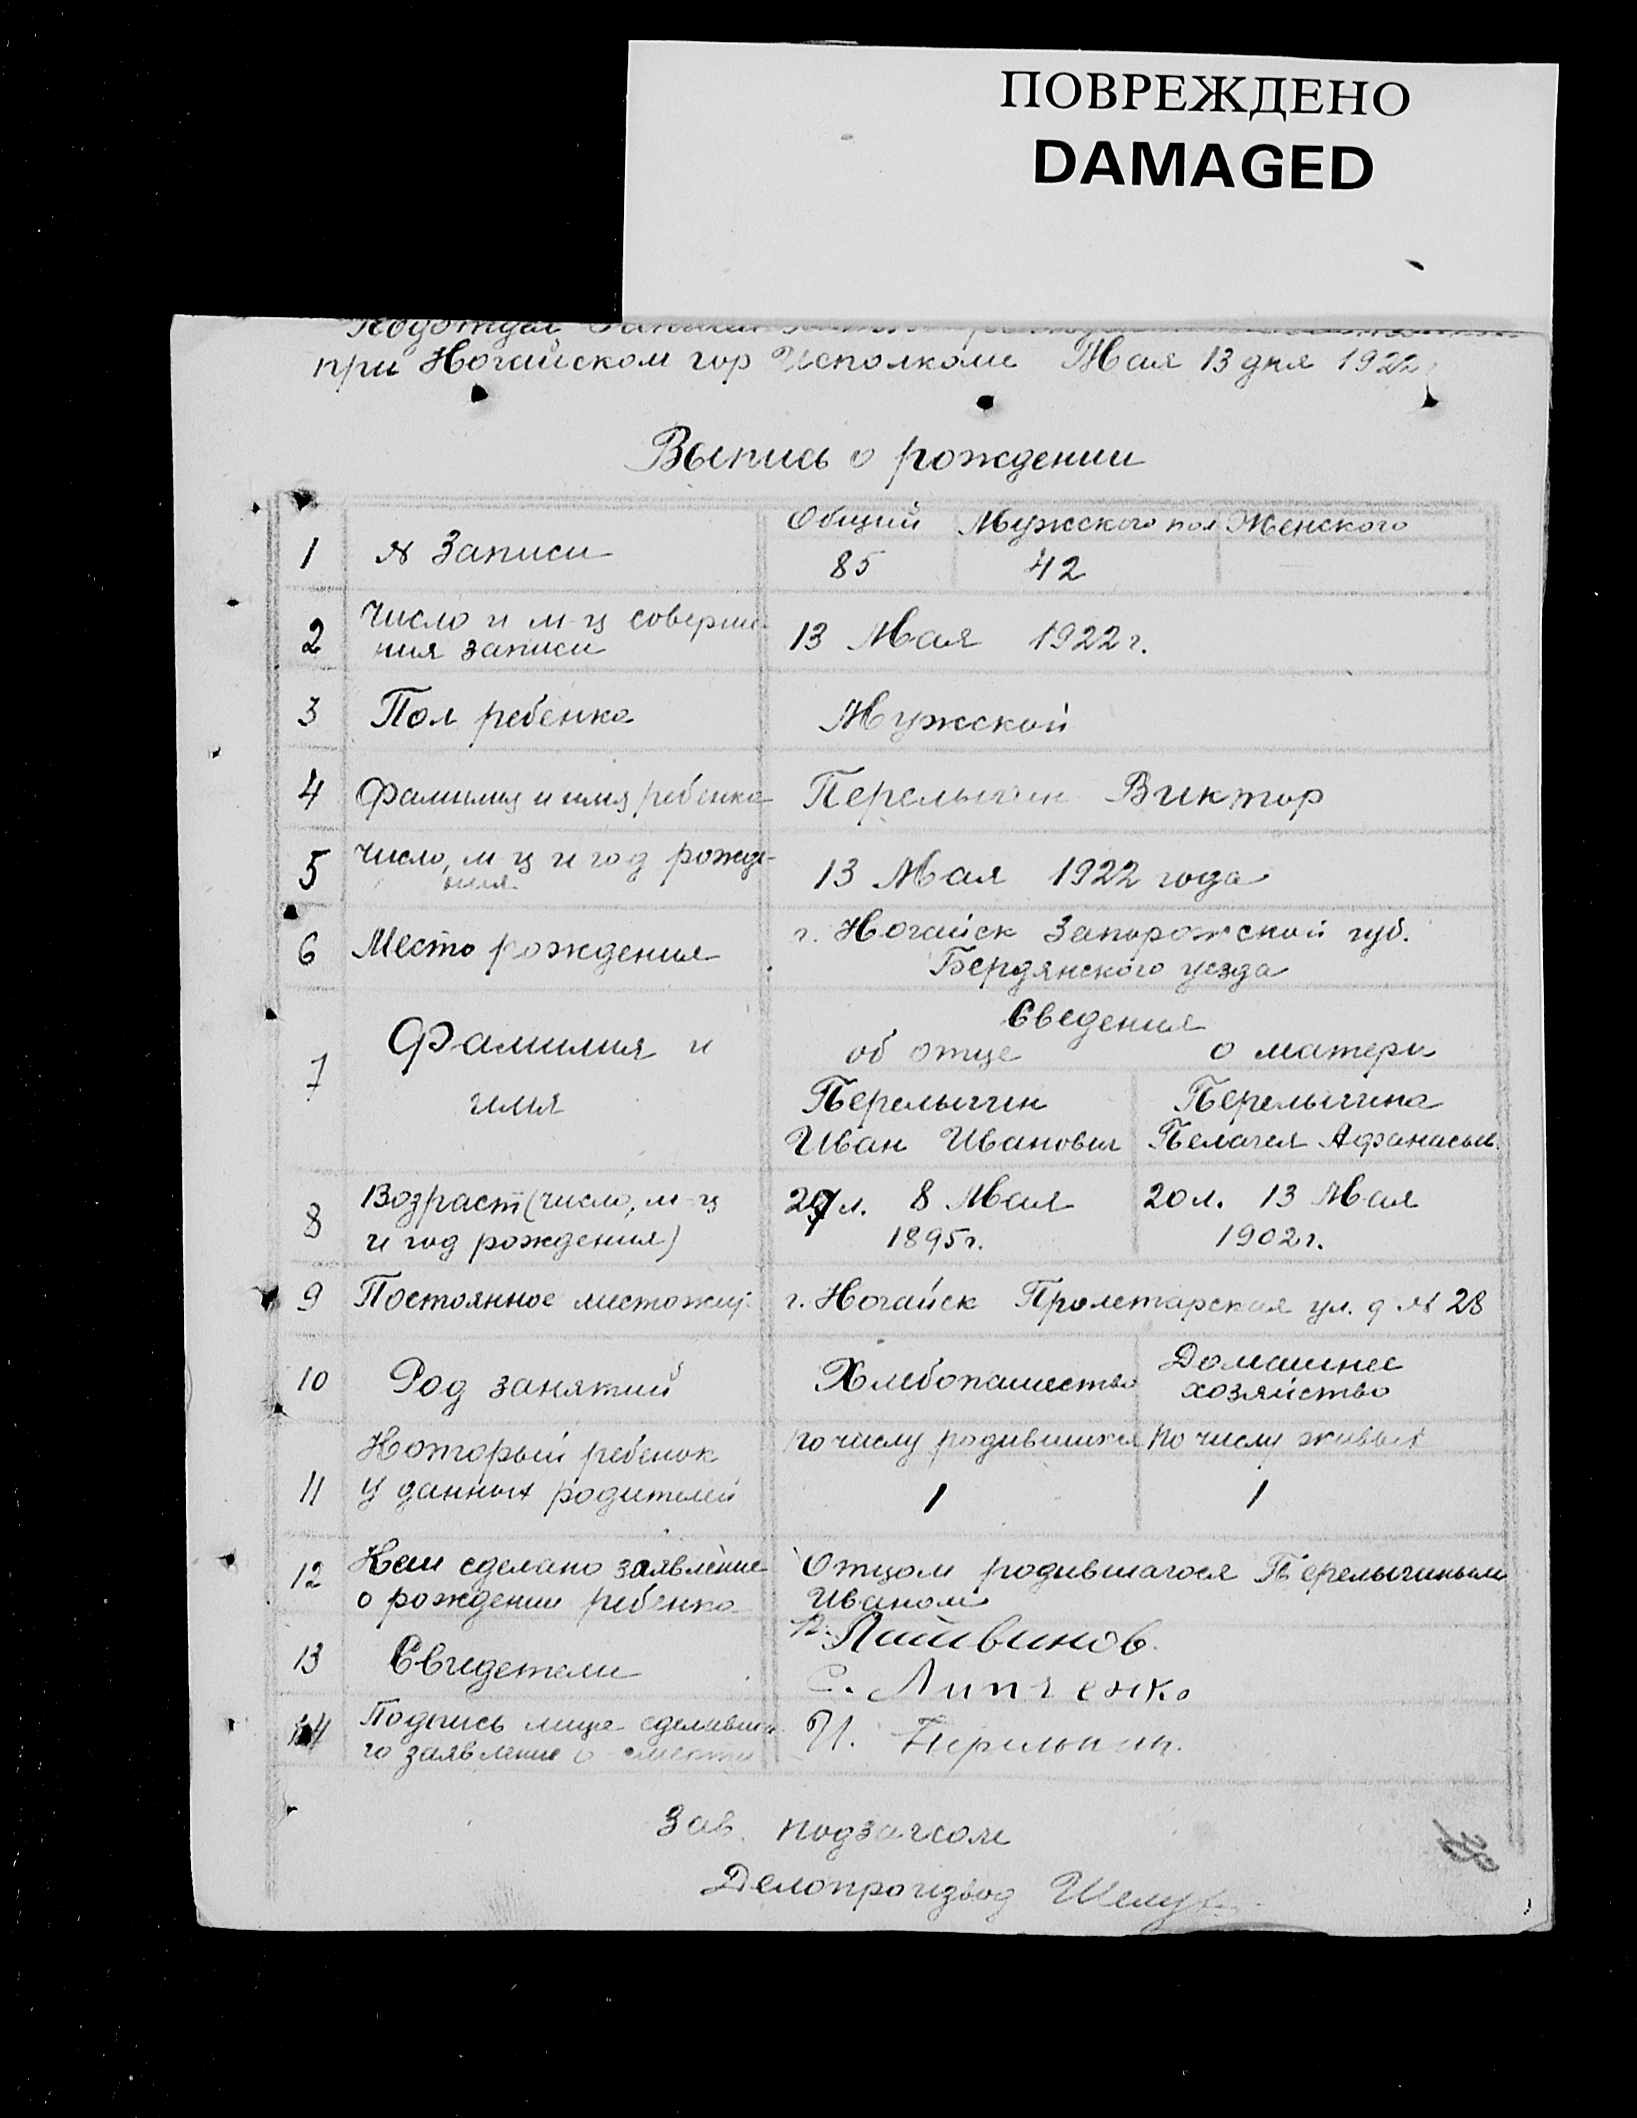 ПОВРЕЖДЕНО
DAMAGED
при Ногайском гор Исполкоме Мая 13 дня 1922
Выпись о рождении
1 № Записи Общий Мужского пол Женского
85 42
2 Число и м-ц соверше-
ния записи 13 Мая 1922 г.
3 Пол ребенка Мужской
4 Фамилия и имя ребенка Перелыгин Виктор
5 Число, м-ц и год рожде-
ния 13 Мая 1922 года
6 Место рождения г. Ногайск Запорожской губ.
Бердянского уезда
7 Фамилия и
имя
Сведения
об отце о матери
Перелыгин Перелыгина
Иван Иванович Пелагея Афанасьев.
8 Возраст (число, м-ц
и год рождения)
27 л. 8 Мая 20 л. 13 Мая
1895 г. 1902 г.
9 Постоянное местожит. г. Ногайск Пролетарская ул. д № 28
10 Род занятий Хлебопашество Домашнее
хозяйство
11 Который ребенок
у данных родителей
по числу родившихся по числу живых
1 1
12 Кем сделано заявление
о рождении ребенка
Отцом родившагося Перелыгиным
Иваном
13 Свидетели
Литвинов.
С. Липченко
14 Подпись лица сделавше-
го заявление о
И. Перелыгин.
Зав. подзагсом
Делопроизвод